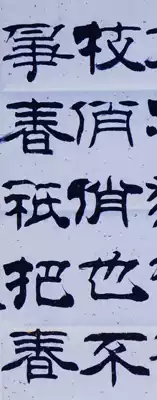 枝俏俏也不
爭春祇把春